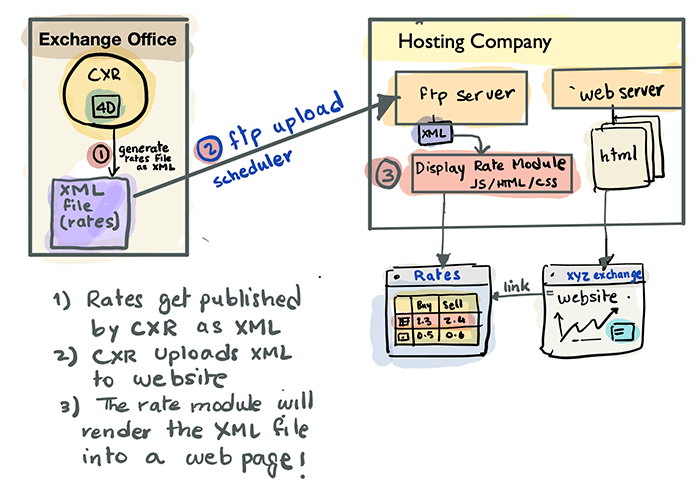 Exchange Office
CXR
4D
1
generate
rates file
as XML
XML
file
(rates)
2 ftp upload
scheduler
Hosting Company
ftp server
web server
XML
html
3
Display Rate Module
JS/HTML/CSS
Rates
Buy Sell
2.3 2.4
0.5 0.6
link
XYZ exchange
website
1) Rates get published
by CXR as XML
2) CXR uploads XML
to website
3) The rate module will
render the XML file
into a web page!